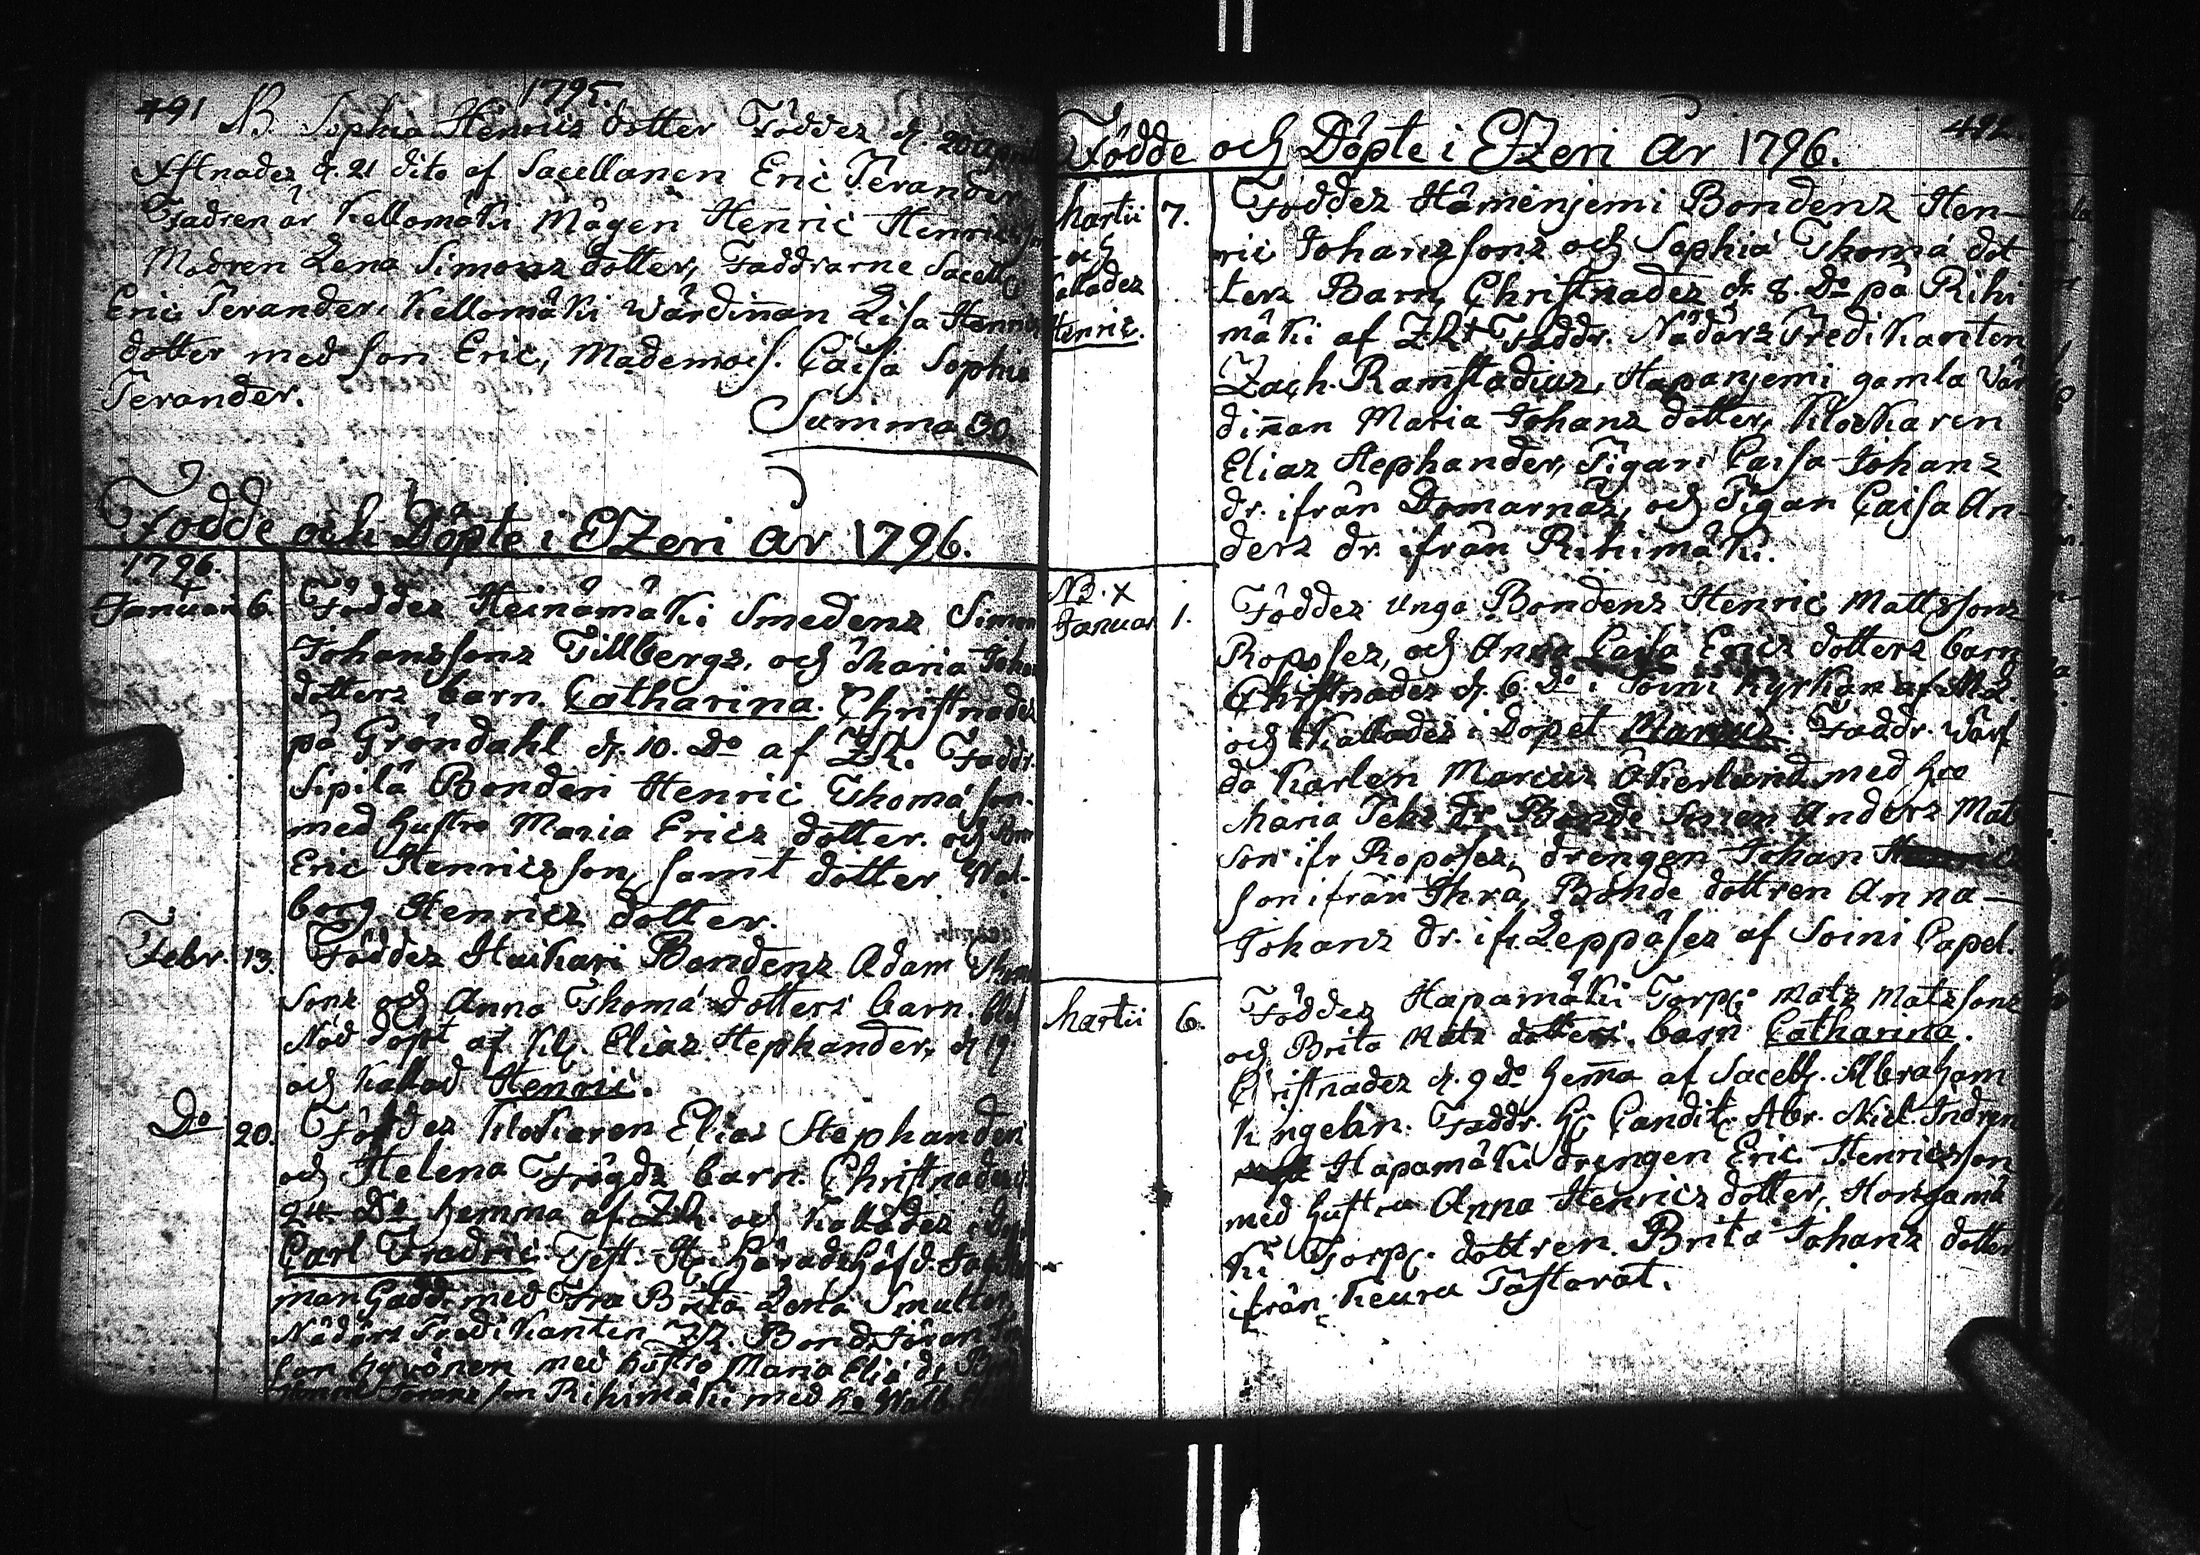 1795.
491 NB. Sophia Henrics dotter Föddes d. 20 April
Xstnades d. 21 dito af Sacellanen Eric Terander
Fadren är Kellomäki Mågen Henric Henricsson
Modren Lena Simons dotter, Faddrarne Sacell.
Eric Terander. Kellomäki Wärdin̄an Lisa Henrics
dotter med son Eric, Mademois. Caisa Sophia
Terander.
Summa 30.
Födde och Döpte i EtZeri år 1796.
1796.
Januari 6. Föddes Heinämäki Smedens Simon
Johanssons Tillbergs, och Maria Johans
dotters barn. Catharina. Christnades
på Gröndahl d. 10. Do af ZR. Faddr.
Sipilä Bonden Henric Thomæ son.
med hustro Maria Erics dotter. och son
Eric Henricsson, samt dotter Wal-
borg Henrics dotter.
Febr. 13. Föddes Haikari Bondens Adam
sons och Anna Thomæ dotters barn. blef
Nöd döpt af Kl. Elias Stephander, d 19
och kallad Henric.
Do 20. Föddes Klokaren Elias Stephanders
och Helena Frögds barn. Christnades d.
24. Do hemma af ZR. och kallades i dop.
Carl Fradric. Test. H. Häradshöfd.
man Gadd, med Fru Brita Lena Smulter,
Nådårs Predikanten ZR. Bond. Jöran
son Hyvönen med hustro Maria Eliæ dr
son Rihimäki med ho Walb.
492.
Födde och Döpte i EtZeri År 1796.
Martii 7. Föddes Hämenjemi Bondens Hen-
och ric Johanssons och Sophia Thomæ dot
kallades ters Barn, Christnades d. 8. Do på Rihi
Henric. mäki af ZR. Faddr. Nådårs Predikanten
Zach. Ramstadius, Hapanjemi gamla Vär
din̄an Maria Johans dotter, Klockaren
Elias Stephander, Pigan Caisa Johans
dr. ifrån Domarnäs, och Pigan Caisa An-
ders dr. ifrån Rihimäki.
NB. X
Januar 1. Föddes Unga Bondens Henric Mattssons
Roposes, och Anna Caisa Erics dotters barn
Christnades d. 6. Do i Soini Kyrkan af
och kallades i Dopet Marcus. Faddr. Warf
da Karlen Marcus Åkerlund med ho
Maria Pehrs dr. Bonde Sonen Anders Mat
son ifr Roposes, drengen Johan Henrics
son ifrån Ihra, Bonde dottren Anna
Johans dr. ifr. Leppäses af Soini Capel.
Martii 6. Föddes Hapamäki Torp. Mats Matssons
och Brita Mats dotters barn Catharina.
Christnades d. 9 Do hem̄a af Sacell. Abraham
Kingelin. Faddr. H. Candit. Abr. Nicl. Indren
Hapamäki drengen Eric Henricsson
med Hustru Anna Henrics dotter, Hongamä
ki Torp. dottren Brita Johans dotter
ifrån Keuru Pastorat.